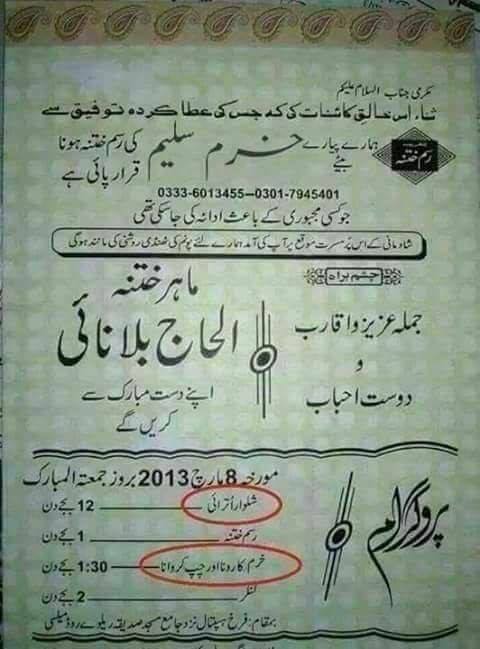 مکرمی جناب السلام علیکم
ثناء اس خالق کائنات کی کہ جس کی عطا کردہ توفیق سے
رسم ختنہ
ہمارے پیارے بیٹے خرم سلیم کی رسم ختنہ ہونا
قرار پائی ہے
0333-6013455—0301-7945401
جو کسی مجبوری کے باعث ادا نہ کی جاسکی تھی
شادمانی کے اس پُر مسرت موقع پر آپ کی آمد ہمارے لئے پونم کی ٹھنڈی روشنی کی مانند ہوگی
چشم براہ
جملہ عزیز و اقارب
و
دوست احباب
ماہر ختنہ
الحاج بلا نائی
اپنے دست مبارک سے
کریں گے
پروگرام
مورخہ 8 مارچ 2013 بروز جمعتہ المبارک
شلوار اُترائی ——— 12 بجے دن
رسم ختنہ ——— 1 بجے دن
خرم کا رونا اور چپ کروانا ——— 1:30 بجے دن
لنگر ——— 2 بجے دن
بمقام: فرخ ہسپتال نزد جامع مسجد صدیقیہ ریلوے روڈ میلسی